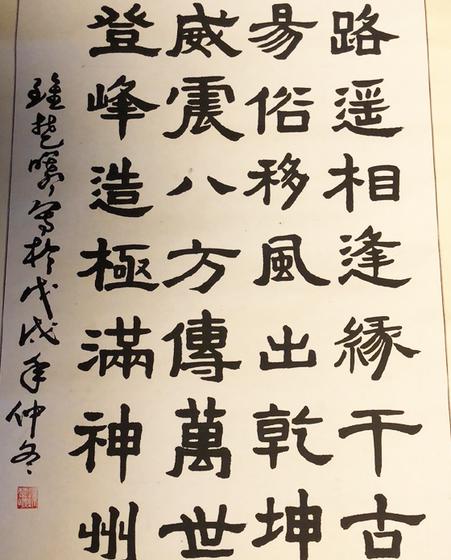 路遥相逢緣干古
易俗移風出乾坤
威震八方傳萬世
登峰造極滿神州
鍾楚寫於戊戌年仲冬